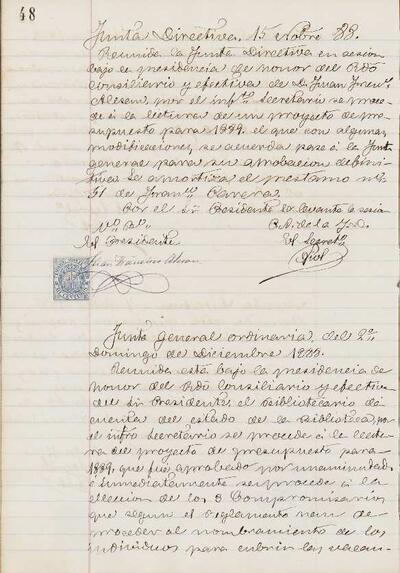 48
Junta Directiva. 15 Nobre 88.
Reunida la Junta Directiva en sesion
bajo la presidencia de honor del Rdo
Consiliario y efectiva de D. Juan Franco
Alesan, por el infto Secretario se proce-
de á la lectura de un proyecto de pre-
supuesto para 1889. el que con algunas
modificaciones, se acuerda pase á la Junta
general para su aprobacion defini-
tiva. Se amortiza el prestamo nº
51 de Franco Carera.
Por el Sr Presidente se levanta la sesion
Vº Bº P. A. de la J. D.
El Presidente El Secretº
Juan Francisco Alesan
Junta general ordinaria, del 2º
Domingo de Diciembre 1888.
Reunida esta bajo la presidencia de
honor del Rdo Consiliario y efectiva
del Sr Presidente, el Bibliotecario dá
cuenta del estado de la Biblioteca, por
el infto Secretario se procede á la lectu-
ra del proyecto de presupuesto para
1889, que fué aprobado por unanimidad,
é inmediatamente se procede á la
eleccion de los 8 Compromisarios
que segun el Reglamento han de
proceder al nombramiento de los
individuos para cubrir las vacan-